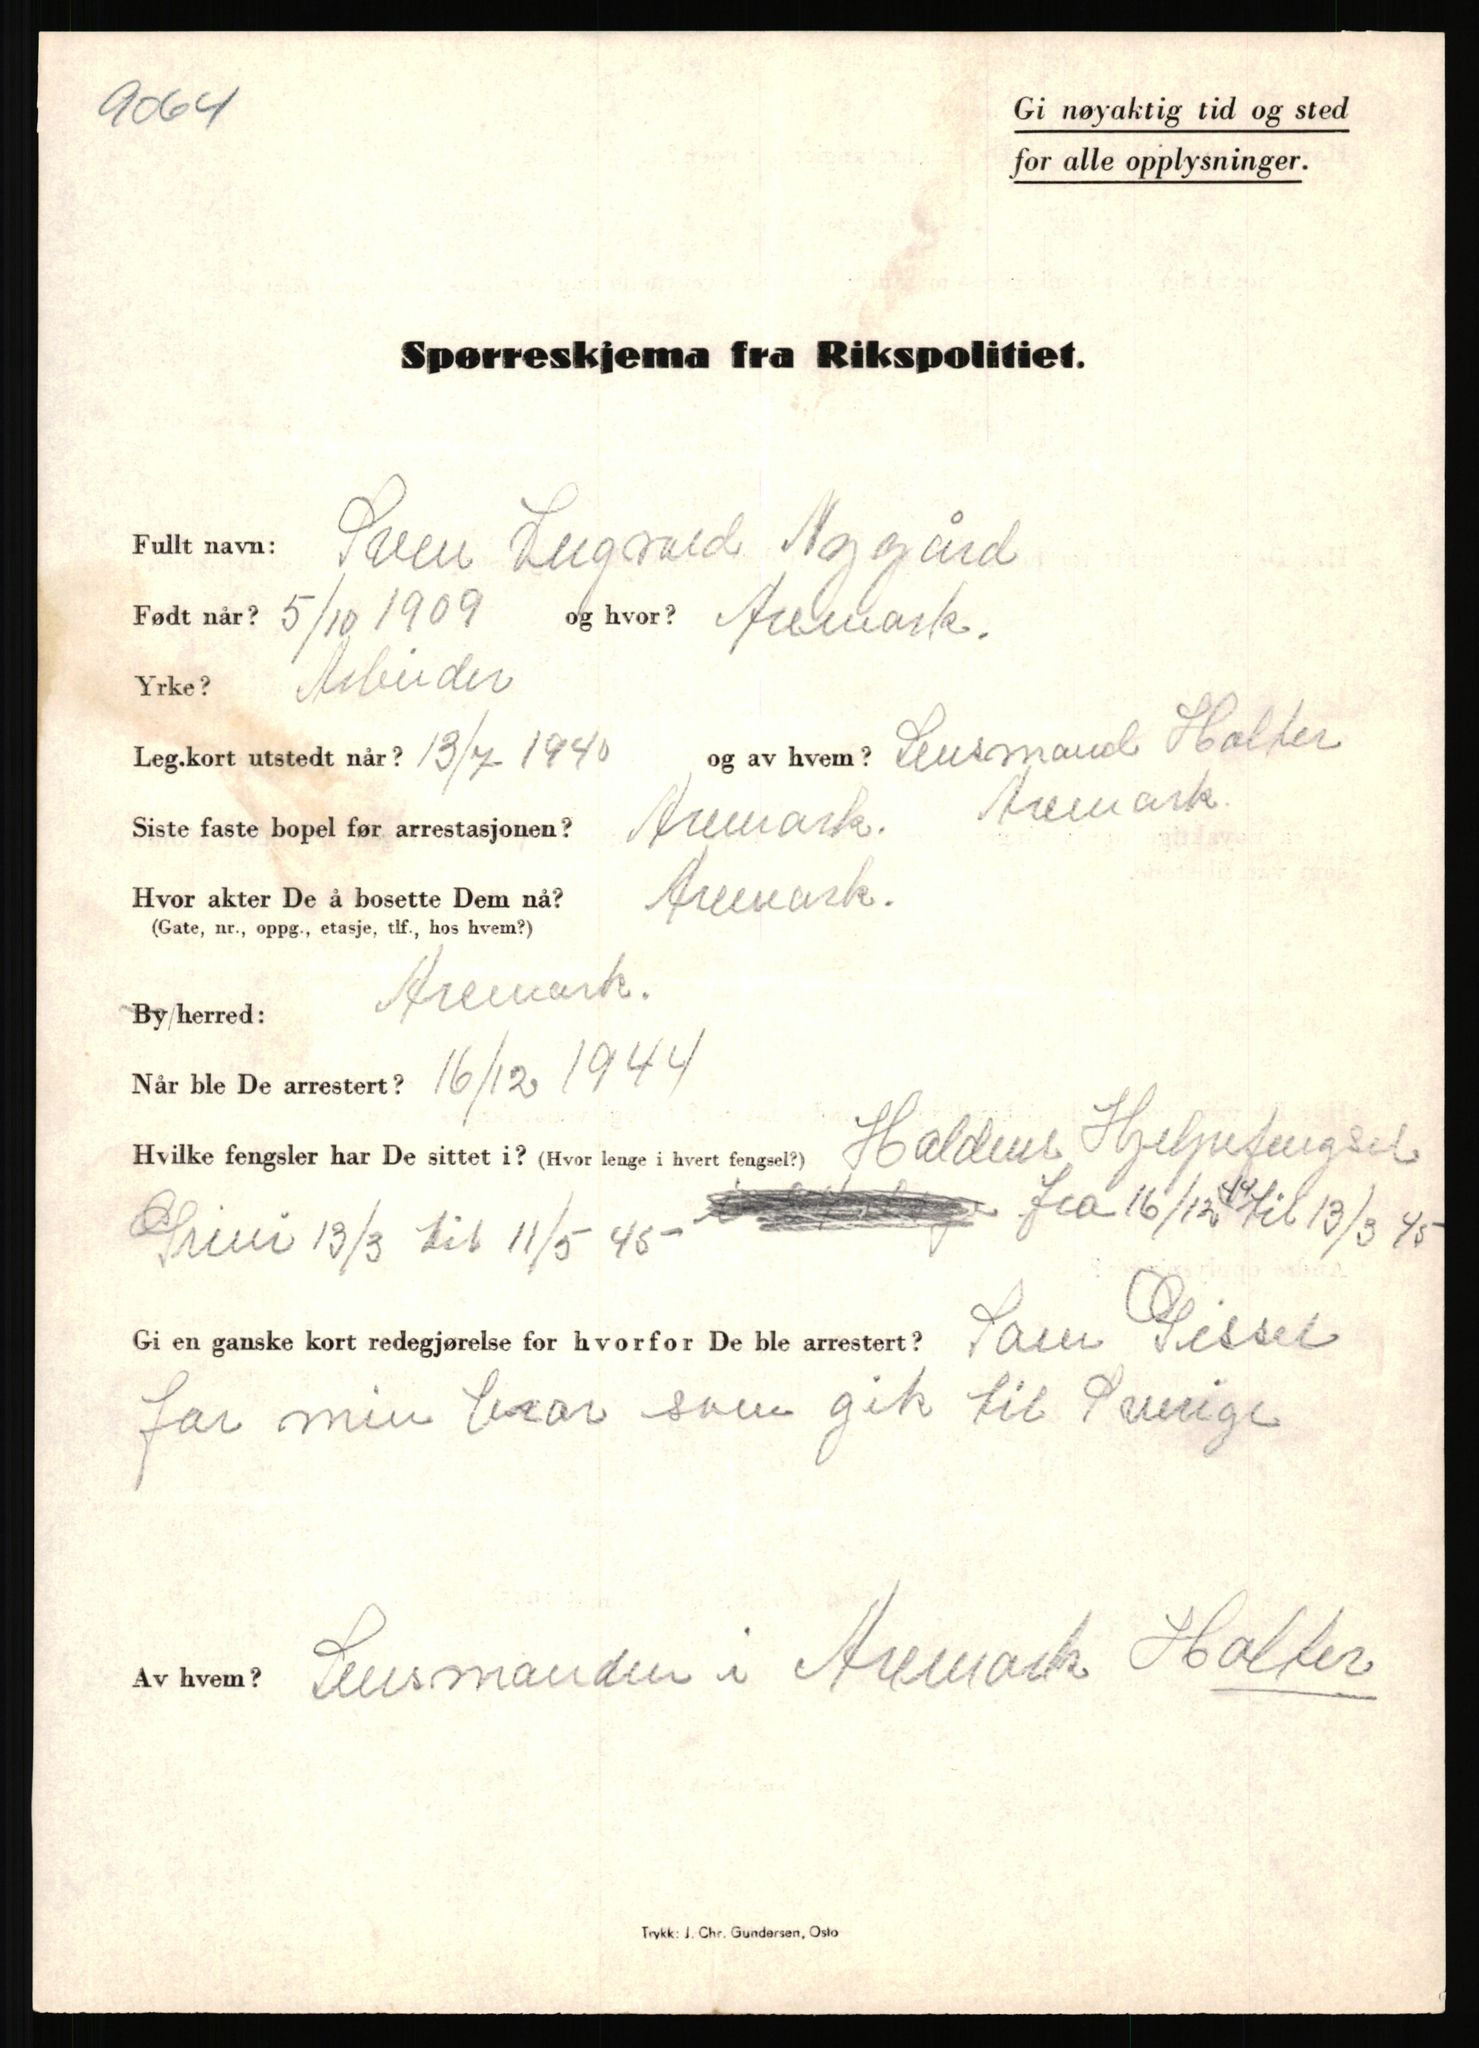 9064
Gi nøyaktig tid og sted
for alle opplysninger.
Spørreskjema fra Rikspolitiet.
Fullt navn: Sven Lugvald Nygård
Født når? 5/10 1909 og hvor? Aremark.
Yrke? Arbeider
Leg.kort utstedt når? 13/7 1940 og av hvem? Lensmand Holter
Aremark.
Siste faste bopel før arrestasjonen? Aremark.
Hvor akter De å bosette Dem nå? Aremark.
(Gate, nr., oppg., etasje, tlf., hos hvem?)
By/herred: Aremark.
Når ble De arrestert? 16/12 1944
Hvilke fengsler har De sittet i? (Hvor lenge i hvert fengsel?) Haldens Hjelpefengsel
fra 16/12 44 til 13/3 45
Grini 13/3 til 11/5 45
Gi en ganske kort redegjørelse for hvorfor De ble arrestert? Som Gissel
for min bror som gik til Sverige
Av hvem? Lensmanden i Aremark Holter
Trykk: J. Chr. Gundersen, Oslo